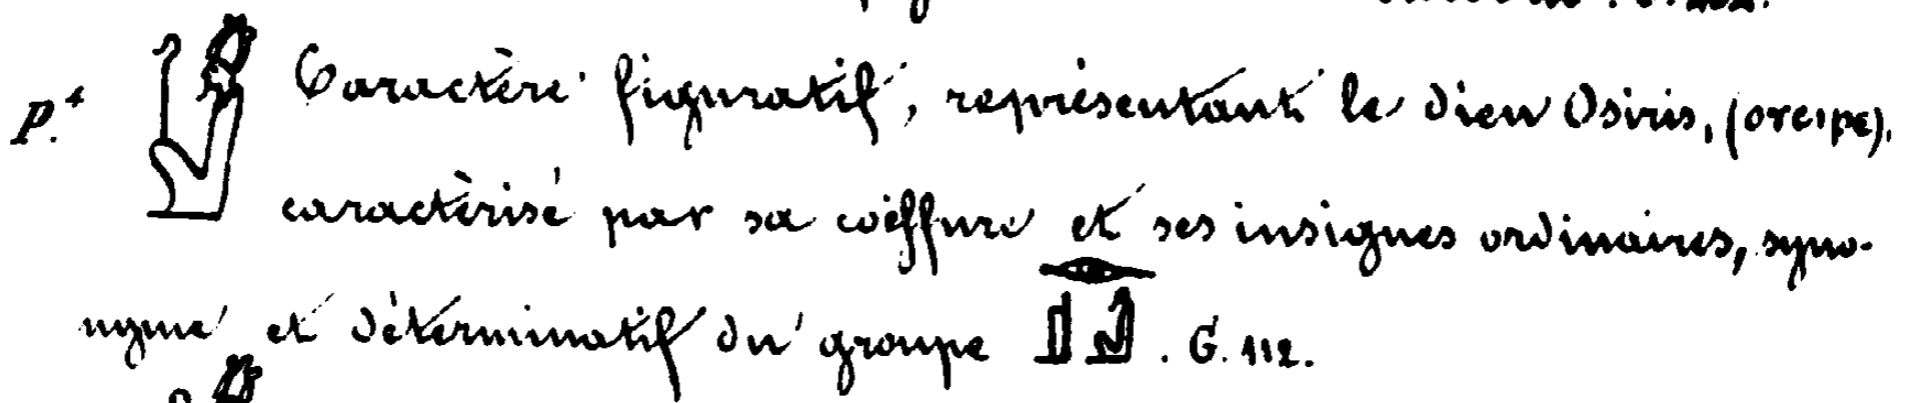 P.t Caractère figuratif, représentant le dieu Osiris, (ⲟⲩⲥⲓⲣⲉ).
caractérisé par sa coëffure et ses insignes ordinaires, syno-
nyme et déterminatif du groupe 𓁹𓊨𓀭. G. 112.